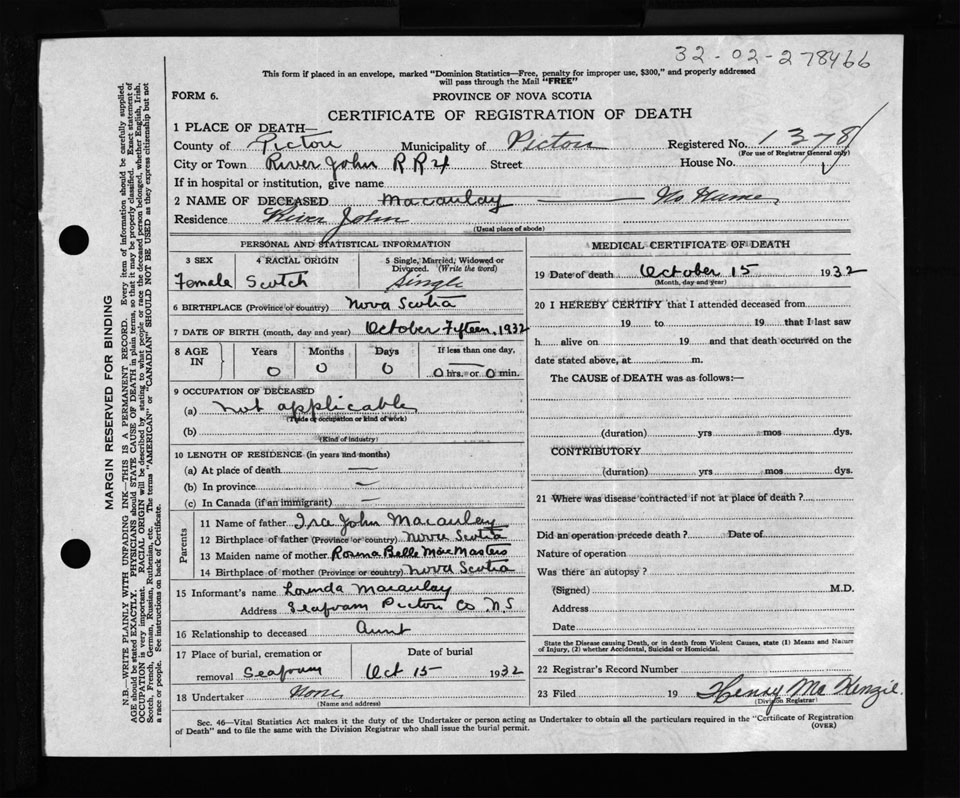 32-02-278466
This form if placed in an envelope, marked "Dominion Statistics—Free, penalty for improper use, $300," and properly addressed
will pass through the Mail "FREE"
FORM 6.
PROVINCE OF NOVA SCOTIA
CERTIFICATE OF REGISTRATION OF DEATH
1 PLACE OF DEATH—
County of Pictou Municipality of Pictou Registered No. 1378
(For use of Registrar General only)
City or Town River John RR4 Street House No.
If in hospital or institution, give name
2 NAME OF DECEASED Macaulay — No Name
Residence River John
(Usual place of abode)
PERSONAL AND STATISTICAL INFORMATION
3 SEX 4 RACIAL ORIGIN 5 Single, Married, Widowed or Divorced. (Write the word)
Female Scotch Single
6 BIRTHPLACE (Province or country) Nova Scotia
7 DATE OF BIRTH (month, day and year) October Fifteen, 1932
8 AGE IN Years Months Days If less than one day,
0 0 0 0 hrs. or 0 min.
9 OCCUPATION OF DECEASED
(a) Not applicable
(Trade or occupation or kind of work)
(b)
(Kind of industry)
10 LENGTH OF RESIDENCE (in years and months)
(a) At place of death —
(b) In province —
(c) In Canada (if an immigrant) —
Parents
11 Name of father Ira John Macaulay
12 Birthplace of father (Province or country) Nova Scotia
13 Maiden name of mother Rosena Belle MacMasters
14 Birthplace of mother (Province or country) Nova Scotia
15 Informant's name Lorinda Macaulay
Address Seafoam Pictou Co N.S
16 Relationship to deceased Aunt
17 Place of burial, cremation or removal Seafoam
Date of burial
Oct 15 1932
18 Undertaker None
(Name and address)
MEDICAL CERTIFICATE OF DEATH
19 Date of death October 15 1932
(Month, day and year)
20 I HEREBY CERTIFY that I attended deceased from
19 to 19 that I last saw
h alive on 19 and that death occurred on the
date stated above, at m.
The CAUSE of DEATH was as follows:—
(duration) yrs mos dys.
CONTRIBUTORY
(duration) yrs mos dys.
21 Where was disease contracted if not at place of death?
Did an operation precede death? Date of
Nature of operation
Was there an autopsy?
(Signed) M.D.
Address
Date
State the Disease causing Death, or in death from Violent Causes, state (1) Means and Nature
of Injury, (2) whether Accidental, Suicidal or Homicidal.
22 Registrar's Record Number
23 Filed 19 Henry McKenzie
(Division Registrar)
Sec. 46—Vital Statistics Act makes it the duty of the Undertaker or person acting as Undertaker to obtain all the particulars required in the "Certificate of Registration
of Death" and to file the same with the Division Registrar who shall issue the burial permit.
(OVER)
MARGIN RESERVED FOR BINDING
N.B.—WRITE PLAINLY WITH UNFADING INK—THIS IS A PERMANENT RECORD. Every item of information should be carefully supplied.
AGE should be stated EXACTLY. PHYSICIANS should STATE CAUSE OF DEATH in plain terms, so that it may be properly classified. Exact statement of
OCCUPATION is very important. RACIAL ORIGIN will be described by stating to what people or race the deceased person belonged, whether English, Irish,
Scotch, French, German, Russian, Ruthenian, etc. The terms "AMERICAN" or "CANADIAN" SHOULD NOT BE USED as they express citizenship but not
a race or people. See instructions on back of Certificate.